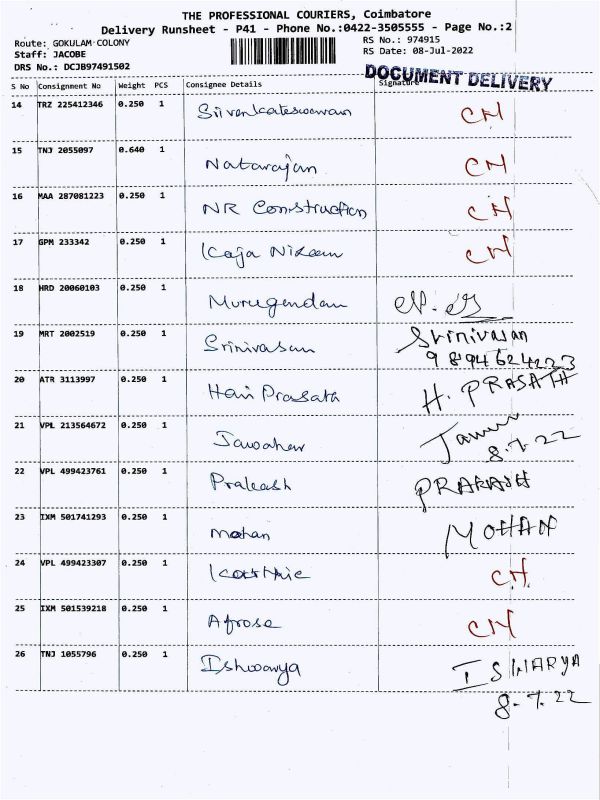 THE PROFESSIONAL COURIERS, Coimbatore
Delivery Runsheet - P41 - Phone No.:0422-3505555 - Page No.:2
Route: GOKULAM COLONY RS No.: 974915
Staff: JACOBE RS Date: 08-Jul-2022
DRS No.: DCJB97491502
DOCUMENT DELIVERY
S No Consignment No Weight PCS Consignee Details Signature
14 TRZ 225412346 0.250 1 Srivenkateswaran CH
15 TNJ 2055097 0.640 1 Natarajan CH
16 MAA 287081223 0.250 1 NR Construction CH
17 GPM 233342 0.250 1 Kaja Nizam CH
18 HRD 20060103 0.250 1 Murugandam
19 MRT 2002519 0.250 1 Srinivasan Srinivasan
9894624223
20 ATR 3113997 0.250 1 Hari Prasath H. PRASATH
21 VPL 213564672 0.250 1 Jawahar
8.7.22
22 VPL 499423761 0.250 1 Prakash PRAKASH
23 IXM 501741293 0.250 1 Mohan MOHAN
24 VPL 499423307 0.250 1 Karthic CH.
25 IXM 501539218 0.250 1 Afrose CH
26 TNJ 1055796 0.250 1 Ishwarya ISHARYA
8.7.22